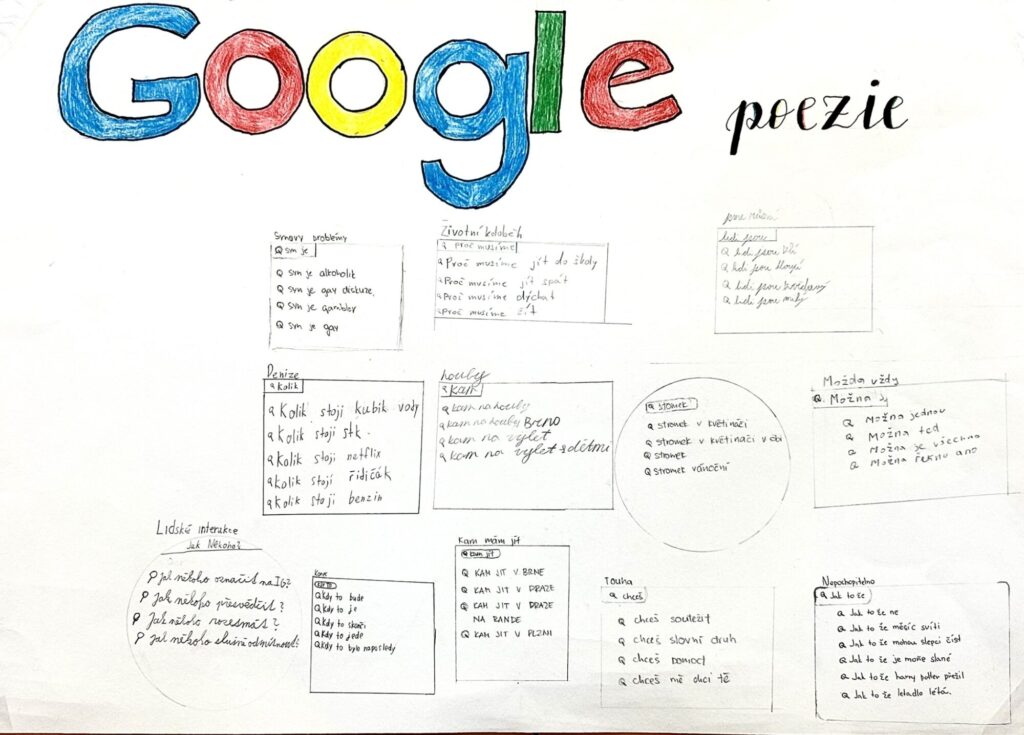 Google poezie
problémy
syn je
syn je alkoholik
syn je gay diskuze
syn je gambler
syn je gay
Životní koloběh
Proč musíme
Proč musíme jít do školy
Proč musíme jít spát
Proč musíme dýchat
Proč musíme žít
jsme
lidi jsou
lidi jsou zlí
lidi jsou
lidi jsou
lidi jsou
Peníze
Kolik
Kolik stojí kubík vody
Kolik stojí stk.
Kolik stojí netflix
Kolik stojí řidičák
Kolik stojí benzin
houby
kam
kam na houby
kam na houby BRNO
kam na výlet
kam na výlet s dětmi
stromek
stromek v květináči
stromek v květináči v obi
stromek
stromek vánoční
Možná vždy
Možná
Možná jednou
Možná teď
Možná je všechno
Možná řeknu ano
Lidské interakce
Jak Někoho?
Jak někoho označit na IG?
Jak někoho přesvědčit?
Jak někoho rozesmát?
Jak někoho slušně odmítnout?
Konec
kdy to
Kdy to bude
Kdy to je
Kdy to skončí
Kdy to jede
Kdy to bylo naposledy
Kam mám jít
kam jít
KAM JIT V BRNE
KAM JIT V PRAZE
KAM JIT V PRAZE
NA RANDE
KAM JIT V PLZNI
Touha
chceš
chceš soutěžit
chceš slovní druh
chceš pomoct
chceš mě chci tě
Nepochopitelno
Jak to že
Jak to že ne
Jak to že měsíc svítí
Jak to že mohou slepci číst
Jak to že je moře slané
Jak to že harry potter přežil
Jak to že letadlo létá.